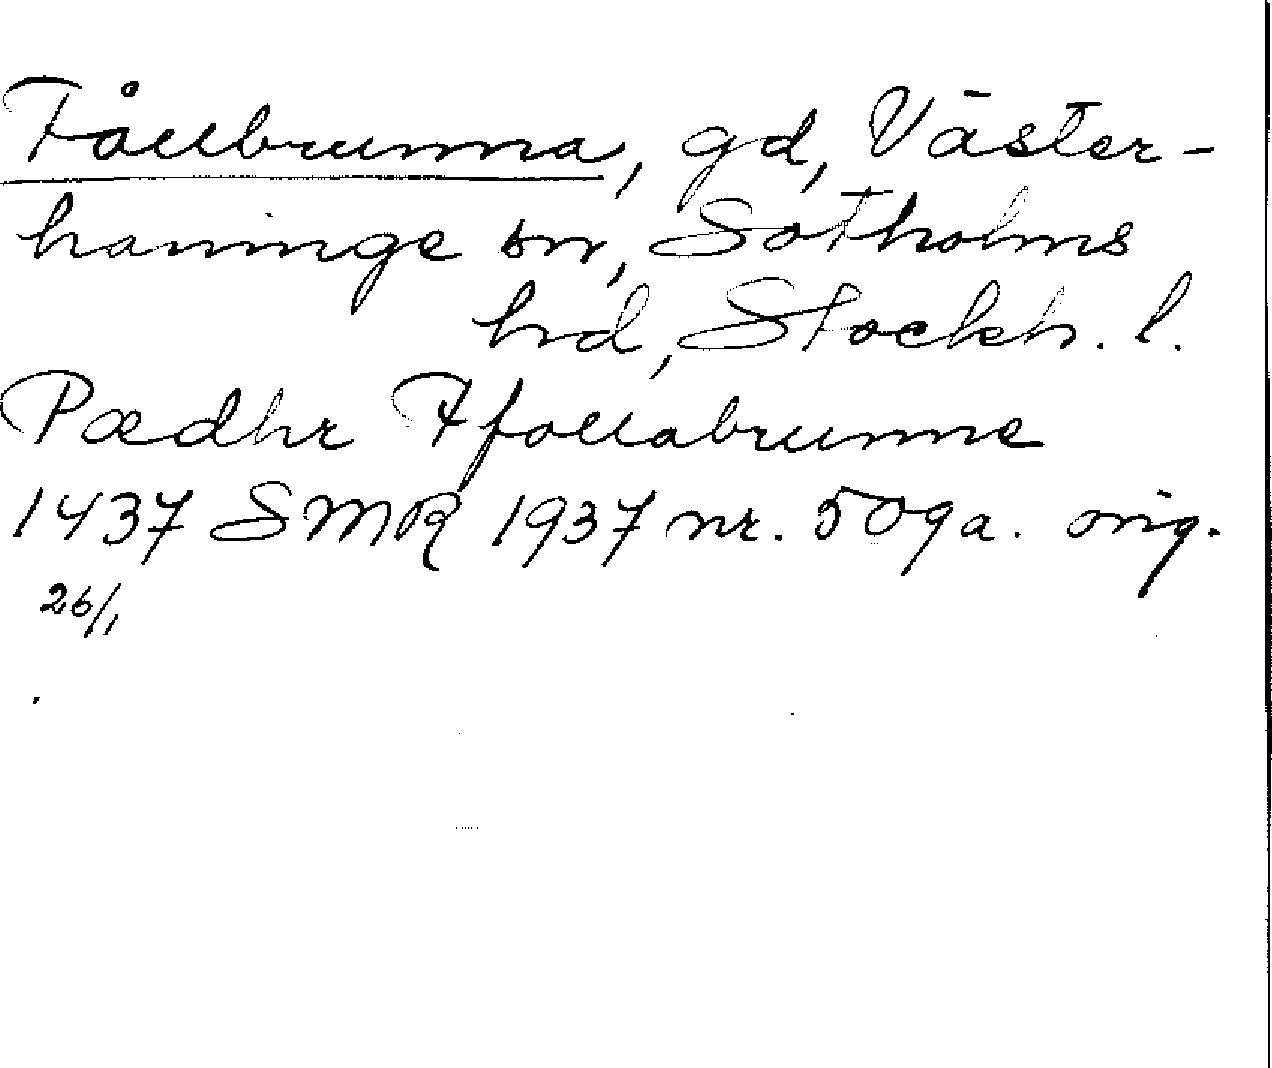 Fållbrunna, gd, Väster-
haninge sn, Sotholms
hd, Stockh. l.
Pædhr Ffollabrunne
1437 SMR 1937 nr. 509a. orig.
26/1